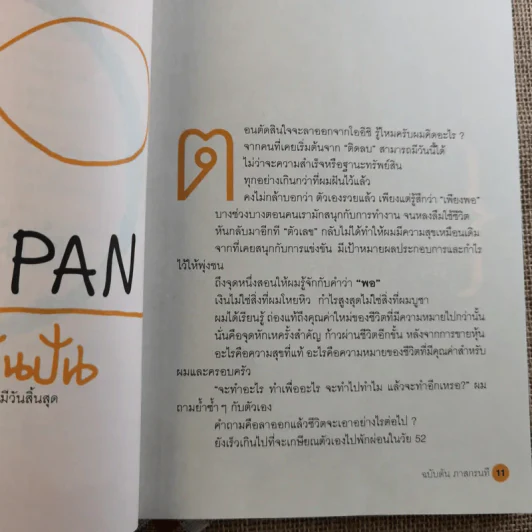 PAN
ปัน
มีวันสิ้นสุด
ตอนตัดสินใจจะลาออกจากโออิชิ รู้ไหมครับผมคิดอะไร ?
จากคนที่เคยเริ่มต้นจาก “ติดลบ” สามารถมีวันนี้ได้
ไม่ว่าจะความสำเร็จหรือฐานะทรัพย์สิน
ทุกอย่างเกินกว่าที่ผมฝันไว้แล้ว
คงไม่กล้าบอกว่า ตัวเองรวยแล้ว เพียงแต่รู้สึกว่า “เพียงพอ”
บางช่วงบางตอนคนเรามักสนุกกับการทำงาน จนหลงลืมใช้ชีวิต
หันกลับมาอีกที “ตัวเลข” กลับไม่ได้ทำให้ผมมีความสุขเหมือนเดิม
จากที่เคยสนุกกับการแข่งขัน มีเป้าหมายผลประกอบการและกำไร
ไว้ให้พุ่งชน
ถึงจุดหนึ่งสอนให้ผมรู้จักกับคำว่า “พอ”
เงินไม่ใช่สิ่งที่ผมโหยหิว กำไรสูงสุดไม่ใช่สิ่งที่ผมบูชา
ผมได้เรียนรู้ ถ่องแท้ถึงคุณค่าใหม่ของชีวิตที่มีความหมายไปกว่านั้น
นั่นคือจุดหักเหครั้งสำคัญ ก้าวผ่านชีวิตอีกขั้น หลังจากการขายหุ้น
อะไรคือความสุขที่แท้ อะไรคือความหมายของชีวิตที่มีคุณค่าสำหรับ
ผมและครอบครัว
“จะทำอะไร ทำเพื่ออะไร จะทำไปทำไม แล้วจะทำอีกเหรอ?” ผม
ถามย้ำซ้ำ ๆ กับตัวเอง
คำถามคือลาออกแล้วชีวิตจะเอาอย่างไรต่อไป ?
ยังเร็วเกินไปที่จะเกษียณตัวเองไปพักผ่อนในวัย 52
ฉบับตัน ภาสกรนที 11